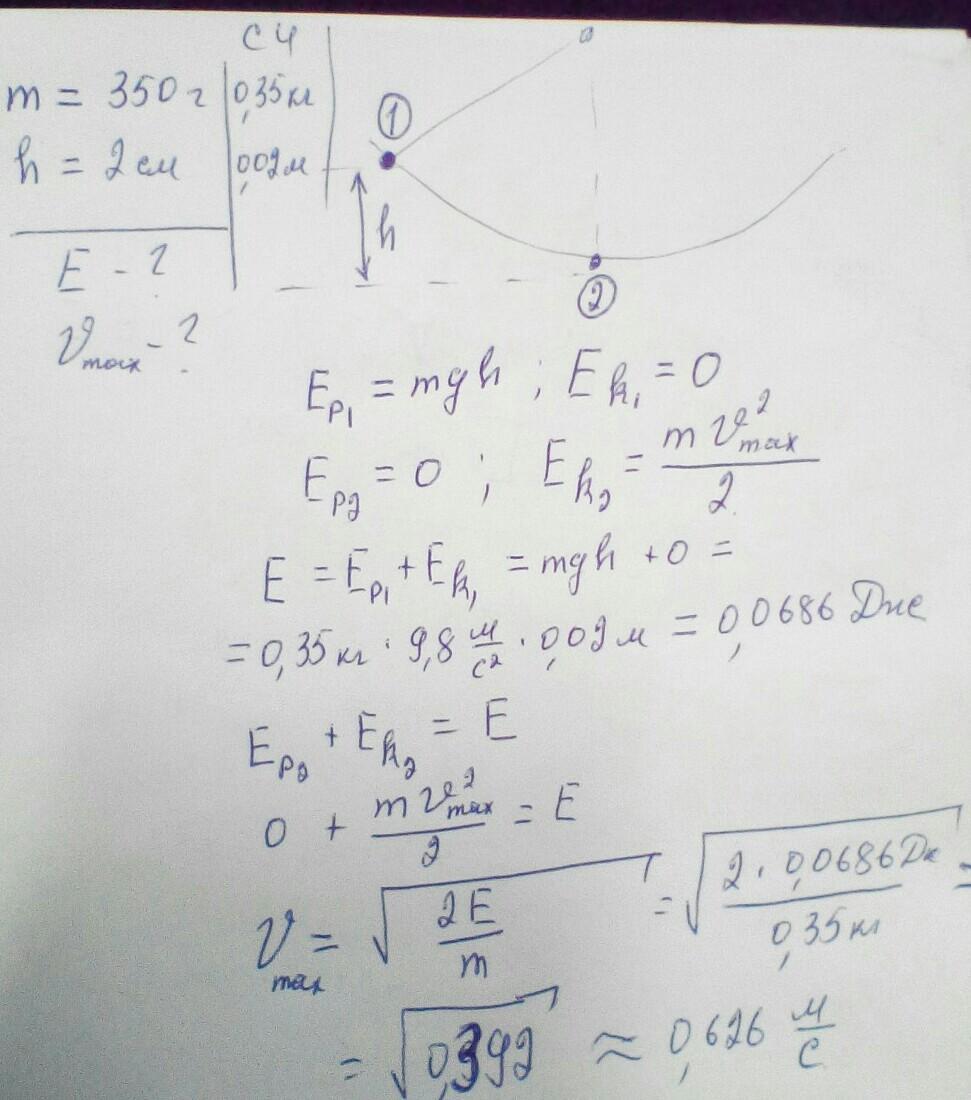 СИ
m = 350 г 0,35 кг
h = 2 см 0,02 м
E - ?
v_max - ?
①
h
②
E_p₁ = mgh ; E_k₁ = 0
E_p₂ = 0 ; E_k₂ = m v²_max / 2
E = E_p₁ + E_k₁ = mgh + 0 =
= 0,35 кг · 9,8 м/с² · 0,02 м = 0,0686 Дж
E_p₂ + E_k₂ = E
0 + m v²_max / 2 = E
v_max = √(2E / m) = √(2 · 0,0686 Дж / 0,35 кг) =
= √0,392 ≈ 0,626 м/с